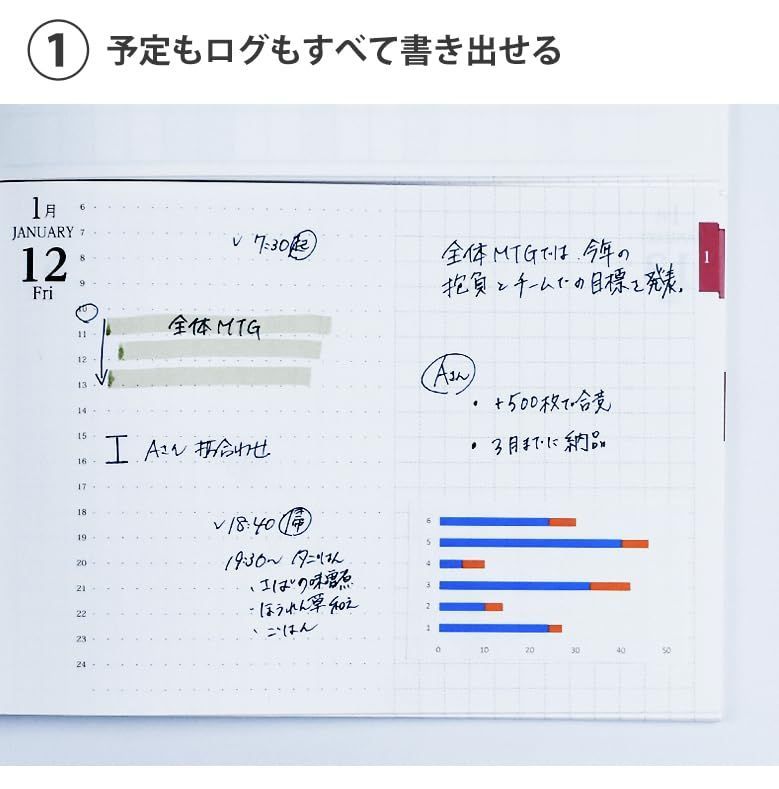 1 予定もログもすべて書き出せる
1月
JANUARY
12
Fri
6
7
8
9
10
11
12
13
14
15
16
17
18
19
20
21
22
23
24
7:30 起
全体MTG
Aさん 打合わせ
18:40 帰
19:30〜 夕ごはん
・さばの味噌煮
・ほうれん草和え
・ごはん
1
全体MTGでは、今年の
抱負とチームでの目標を発表。
Aさん
・+500枚で合意
・3月までに納品
6
5
4
3
2
1
0 10 20 30 40 50